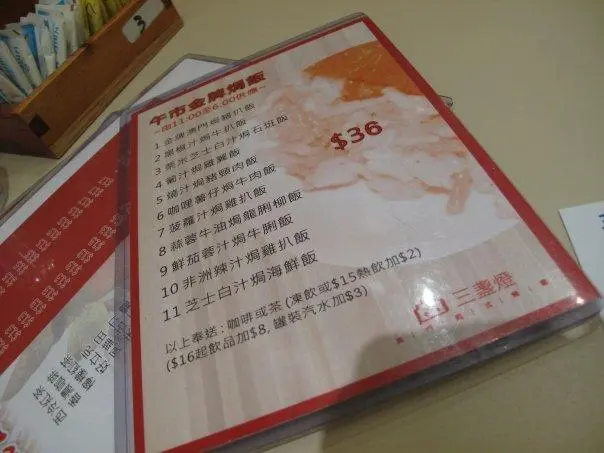 3
午市金牌焗飯
~由11:00至6:00供應~
1 金牌澳門焗豬扒飯
2 黑椒汁焗牛扒飯
3 粟米芝士白汁焗石斑飯
4 葡汁焗雞翼飯
5 燒汁焗豬頸肉飯
6 咖喱薯仔焗牛肉飯
7 菠蘿汁焗雞扒飯
8 蒜蓉牛油焗龍脷柳飯
9 鮮茄蓉汁焗牛脷飯
10 非洲辣汁焗雞扒飯
11 芝士白汁焗海鮮飯
$36
以上奉送：咖啡或茶 (凍飲或$15熱飲加$2)
($16起飲品加$8, 罐裝汽水加$3)
三盞燈
西冷紅茶
香濃咖啡